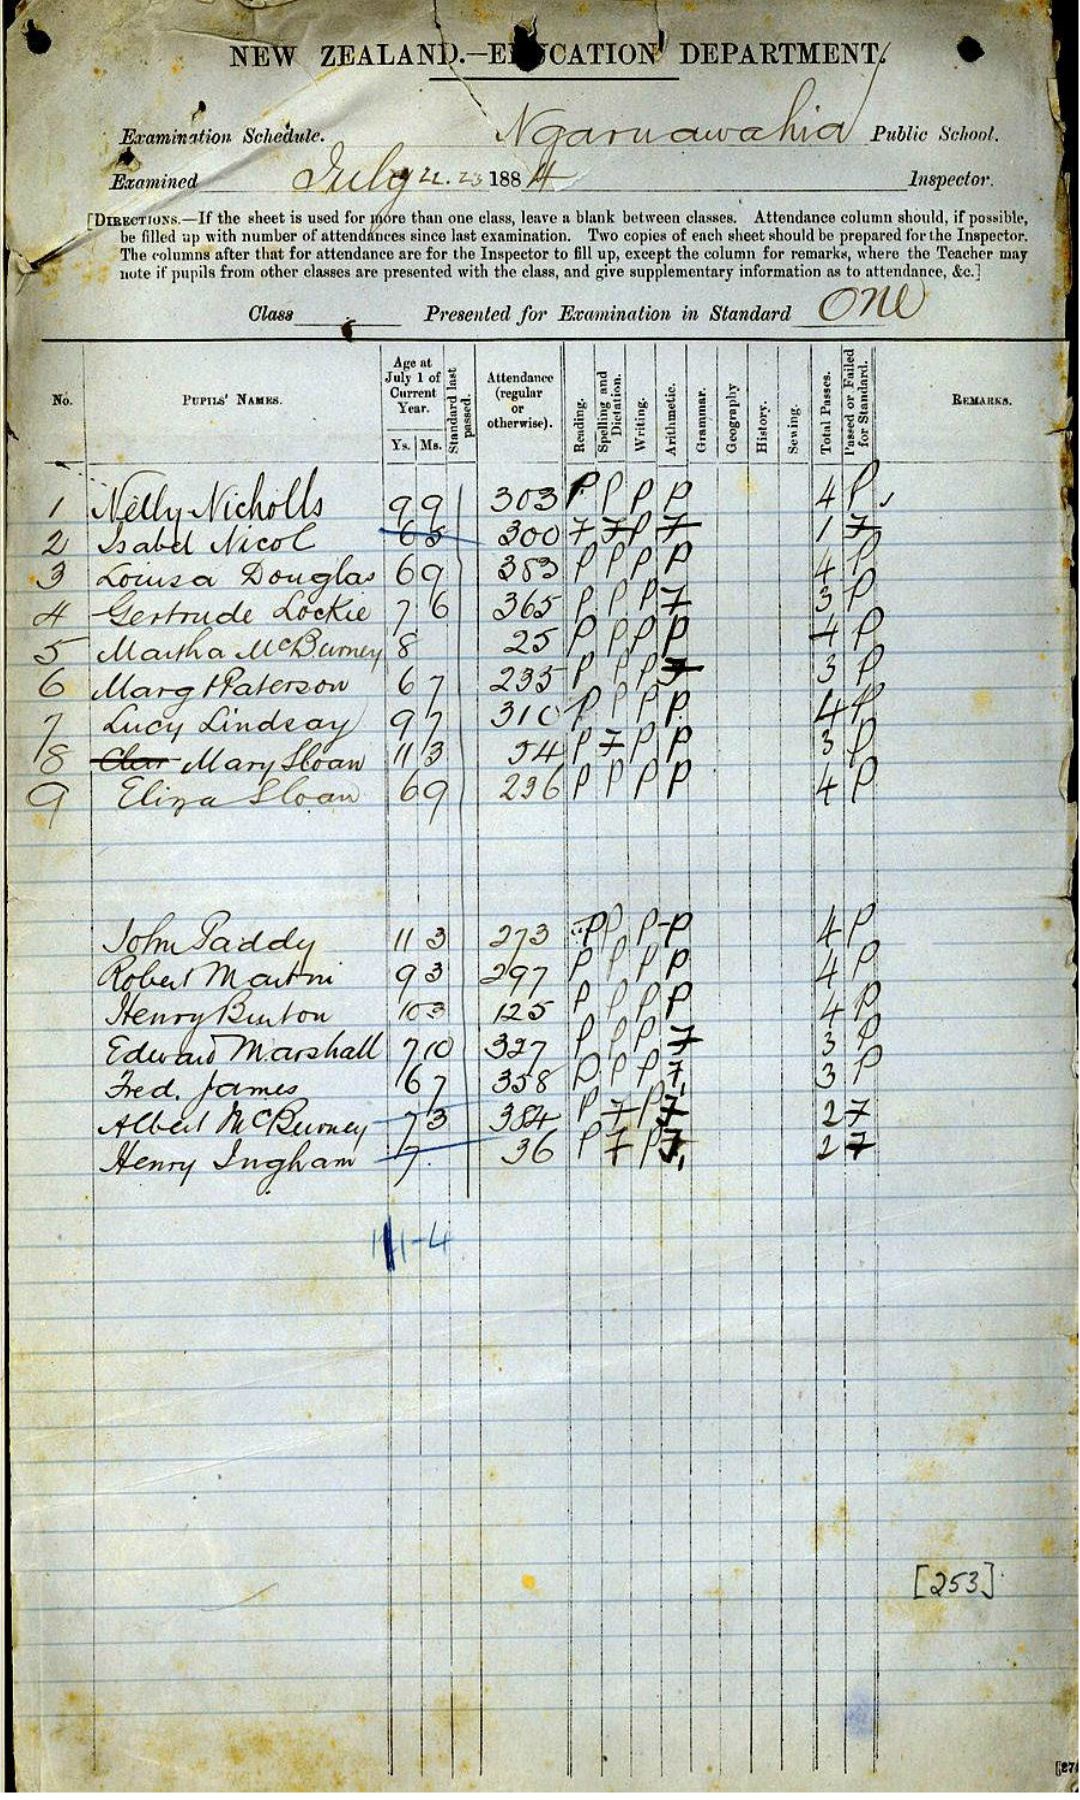 NEW ZEALAND.—EDUCATION DEPARTMENT.
Examination Schedule. Ngaruawahia Public School.
Examined July 22. 23 1884 Inspector.
[DIRECTIONS.—If the sheet is used for more than one class, leave a blank between classes. Attendance column should, if possible,
be filled up with number of attendances since last examination. Two copies of each sheet should be prepared for the Inspector.
The columns after that for attendance are for the Inspector to fill up, except the column for remarks, where the Teacher may
note if pupils from other classes are presented with the class, and give supplementary information as to attendance, &c.]
Class Presented for Examination in Standard One
No. PUPILS' NAMES. Age at July 1 of Current Year. Ys. Ms. Standard last passed. Attendance (regular or otherwise). Reading. Spelling and Dictation. Writing. Arithmetic. Grammar. Geography History. Sewing. Total Passes. Passed or Failed for Standard. REMARKS.
1 Nelly Nicholls 9 9 303 P P P P 4 P
2 Isabel Nicol 6 5 300 7 7 P 7 1 7
3 Louisa Douglas 6 9 383 P P P P 4 P
4 Gertrude Lockie 7 6 365 P P P 7 3 P
5 Martha McBurney 8 25 P P P P 4 P
6 Margt Paterson 6 7 235 P P P 7 3 P
7 Lucy Lindsay 9 7 310 P P P P 4 P
8 Clar Mary Sloan 11 3 54 P 7 P P 3 P
9 Eliza Sloan 6 9 236 P P P P 4 P
John Paddy 11 3 273 P P P P 4 P
Robert Martin 9 3 297 P P P P 4 P
Henry Burton 10 3 125 P P P P 4 P
Edward Marshall 7 10 327 P P P 7 3 P
Fred. James 6 7 358 P P P 7 3 P
Albert McBurney 7 3 384 P 7 P 7 2 7
Henry Ingham 7. 36 P 7 P 7 2 7
11-4
[253]